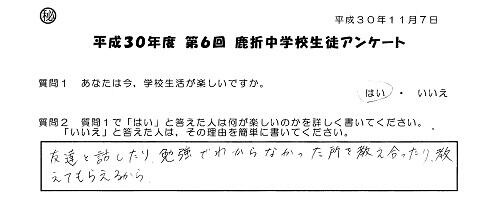 ㊙
平成30年11月7日
平成30年度 第6回 鹿折中学校生徒アンケート
質問1 あなたは今、学校生活が楽しいですか。
はい ・ いいえ
質問2 質問1で「はい」と答えた人は何が楽しいのかを詳しく書いてください。
「いいえ」と答えた人は、その理由を簡単に書いてください。
友達と話したり、勉強でわからなかった所を教え合ったり、教
えてもらえるから